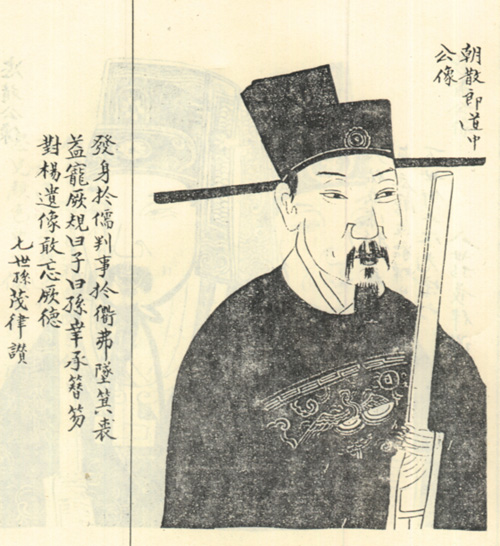 朝散郎道中
公像
發身於儒判事於衙弗墜箕裘
益寵厥規曰子曰孫幸承簪笏
對楊遺像敢忘厥德
七世孫茂律讚